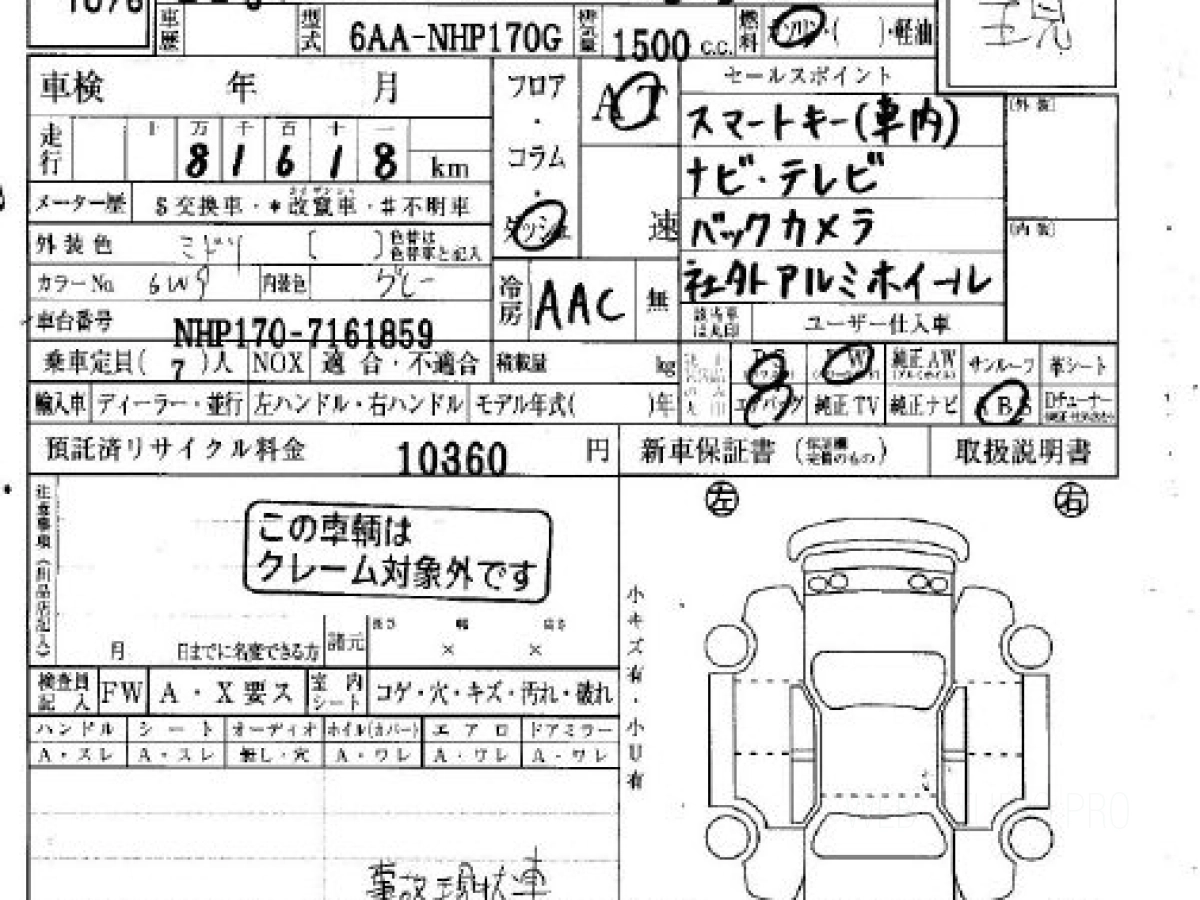 車歴 型式 6AA-NHP170G 排気量 1500 c.c. 燃料 ガソリン・( )・軽油
車検 年 月
フロア・コラム・ダッシュ
AT
速
セールスポイント
スマートキー(車内)
ナビ・テレビ
バックカメラ
社外アルミホイール
(外装)
(内装)
走行 十 万 千 百 十 一
8 1 6 1 8 km
メーター歴 $交換車・*改竄車・#不明車
外装色 ミドリ ( ) 色替は色替車と記入
カラーNo. 6W9 内装色 グレー
冷房 AAC 無
車台番号 NHP170-7161859
該当車は丸印 ユーザー仕入車
乗車定員( 7 )人 NOX 適合・不適合 積載量 kg
純正AW サンルーフ 革シート
輸入車 ディーラー・並行 左ハンドル・右ハンドル モデル年式( )年
エアバッグ 純正TV 純正ナビ ABS Dチューナー
預託済リサイクル料金 10360 円
新車保証書 (保証欄完備のもの) 取扱説明書
注意事項(出品店記入)
この車輌は
クレーム対象外です
左 右
小キズ有・小U有
月 日までに名変できる方 諸元 長さ 幅 高さ
× ×
検査員記入 FW A・X要ス 室内シート コゲ・穴・キズ・汚れ・破れ
ハンドル シート オーディオ ホイル(カバー) エアロ ドアミラー
A・スレ A・スレ 無し・穴 A・ワレ A・ワレ A・ワレ
事故現状車
PRO